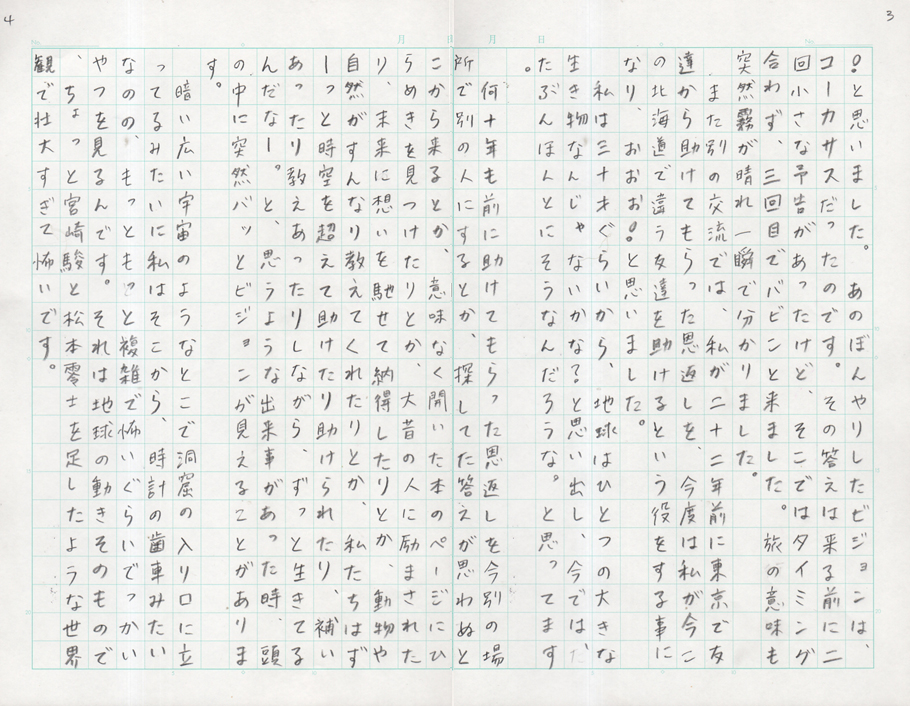 3
！と思いました。あのぼんやりしたビジョンは、
コーカサスだったのです。その答えは来る前に二
回小さな予告があったけど、そこではタイミング
合わず、三回目でバビンと来ました。旅の意味も
突然霧が晴れ一瞬で分かりました。
、また別の交流では、私が二十二年前に東京で友
達から助けてもらった恩返しを、今度は私が今こ
の北海道で違う友達を助けるという役をする事に
なり、おおお！と思いました。
私は三十才ぐらいから、地球はひとつの大きな
生き物なんじゃないかな？と思い出し、今では
たぶんほんとにそうなんだろうな。と思ってます
。
何十年も前に助けてもらった恩返しを今別の場
所で別の人にするとか、探してた答えが思わぬと
こから来るとか、意味なく開いた本のページにひ
らめきを見つけたりとか、大昔の人に励まされた
り、未来に想いを馳せて納得したりとか、動物や
自然がすんなり教えてくれたりとか、私たちはず
ーっと時空を超えて助けたり助けられたり、補い
あったり教えあったりしながら、ずっと生きてる
んだなー。と、思うような出来事があった時、頭
の中に突然バッとビジョンが見えることがありま
す。
暗い広い宇宙のようなとこで洞窟の入り口に立
ってるみたいに私はそこから、時計の歯車みたい
なのの、もっともっと複雑で怖いぐらいでっかい
やつを見るんです。それは地球の動きそのもので
、ちょっと宮崎駿と松本零士を足したような世界
観で壮大すぎて怖いです。
4
月 日
月 日